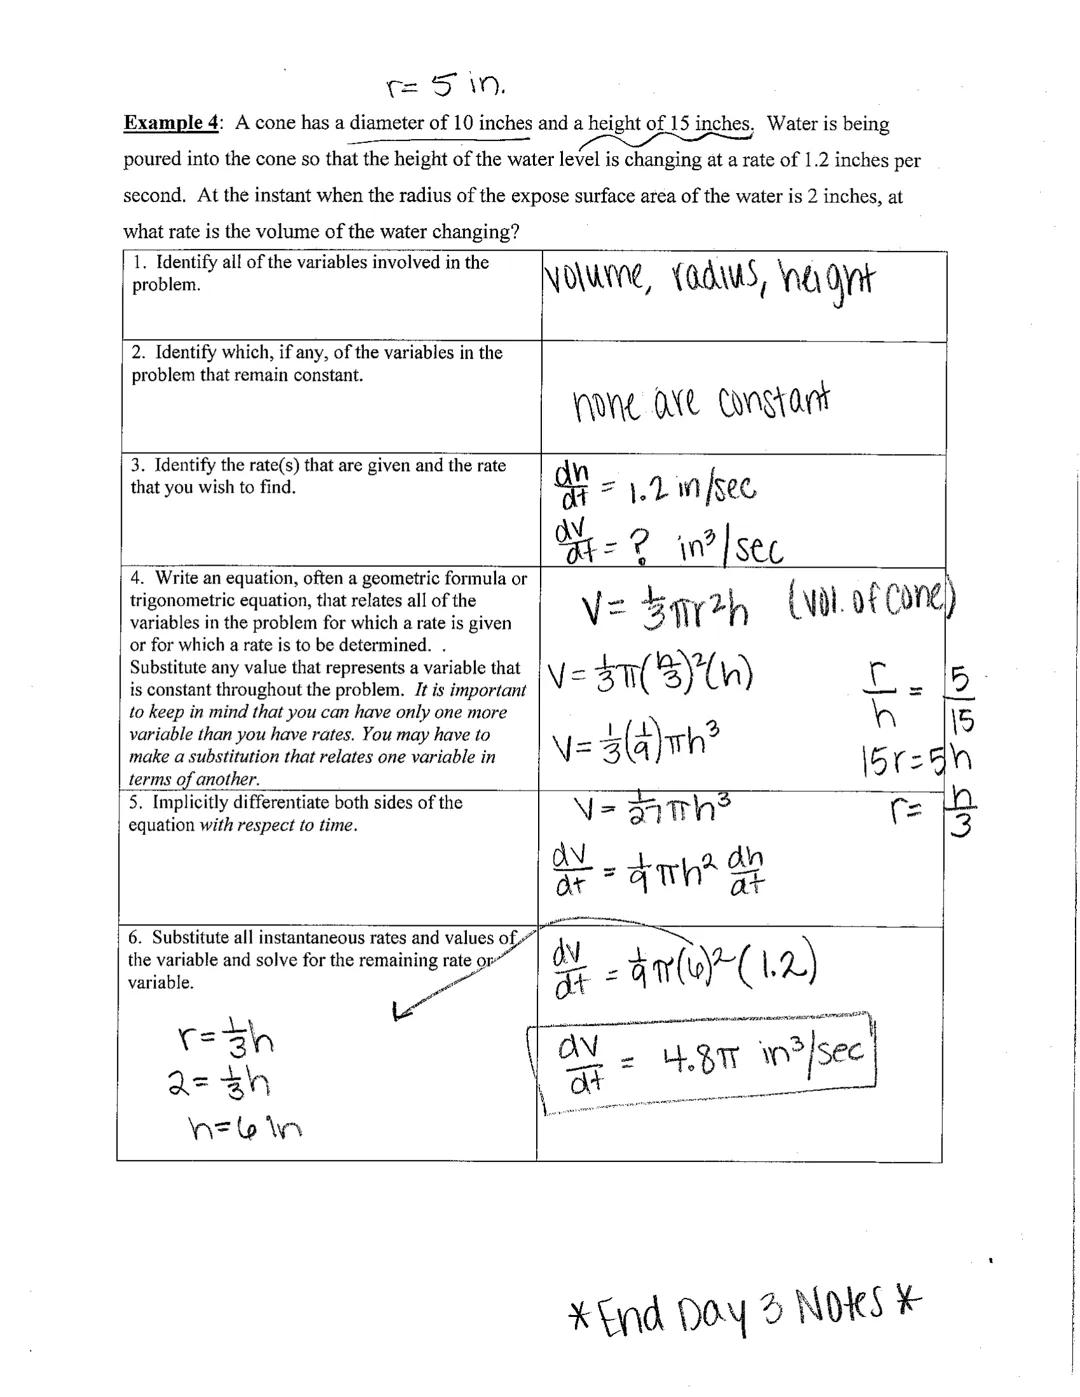 r= 5 in.
Example 4: A cone has a diameter of 10 inches and a height of 15 inches. Water is being
poured into the cone so that the height of the water level is changing at a rate of 1.2 inches per
second. At the instant when the radius of the expose surface area of the water is 2 inches, at
what rate is the volume of the water changing?
1. Identify all of the variables involved in the
problem.
volume, radius, height
2. Identify which, if any, of the variables in the
problem that remain constant.
none are constant
3. Identify the rate(s) that are given and the rate
that you wish to find.
dh/dt = 1.2 in/sec
dv/dt = ? in³/sec
4. Write an equation, often a geometric formula or
trigonometric equation, that relates all of the
variables in the problem for which a rate is given
or for which a rate is to be determined. .
Substitute any value that represents a variable that
is constant throughout the problem. It is important
to keep in mind that you can have only one more
variable than you have rates. You may have to
make a substitution that relates one variable in
terms of another.
V= 1/3 πr²h (vol. of cone)
V= 1/3 π(h/3)²(h)
V= 1/3(1/9)πh³
r/h = 5/15
15r=5h
r= h/3
5. Implicitly differentiate both sides of the
equation with respect to time.
V= 1/27 πh³
dv/dt = 1/9 πh² dh/dt
6. Substitute all instantaneous rates and values of
the variable and solve for the remaining rate or
variable.
r= 1/3 h
2= 1/3 h
h=6 in
dv/dt = 1/9 π(6)²(1.2)
dv/dt = 4.8π in³/sec
*End Day 3 Notes*